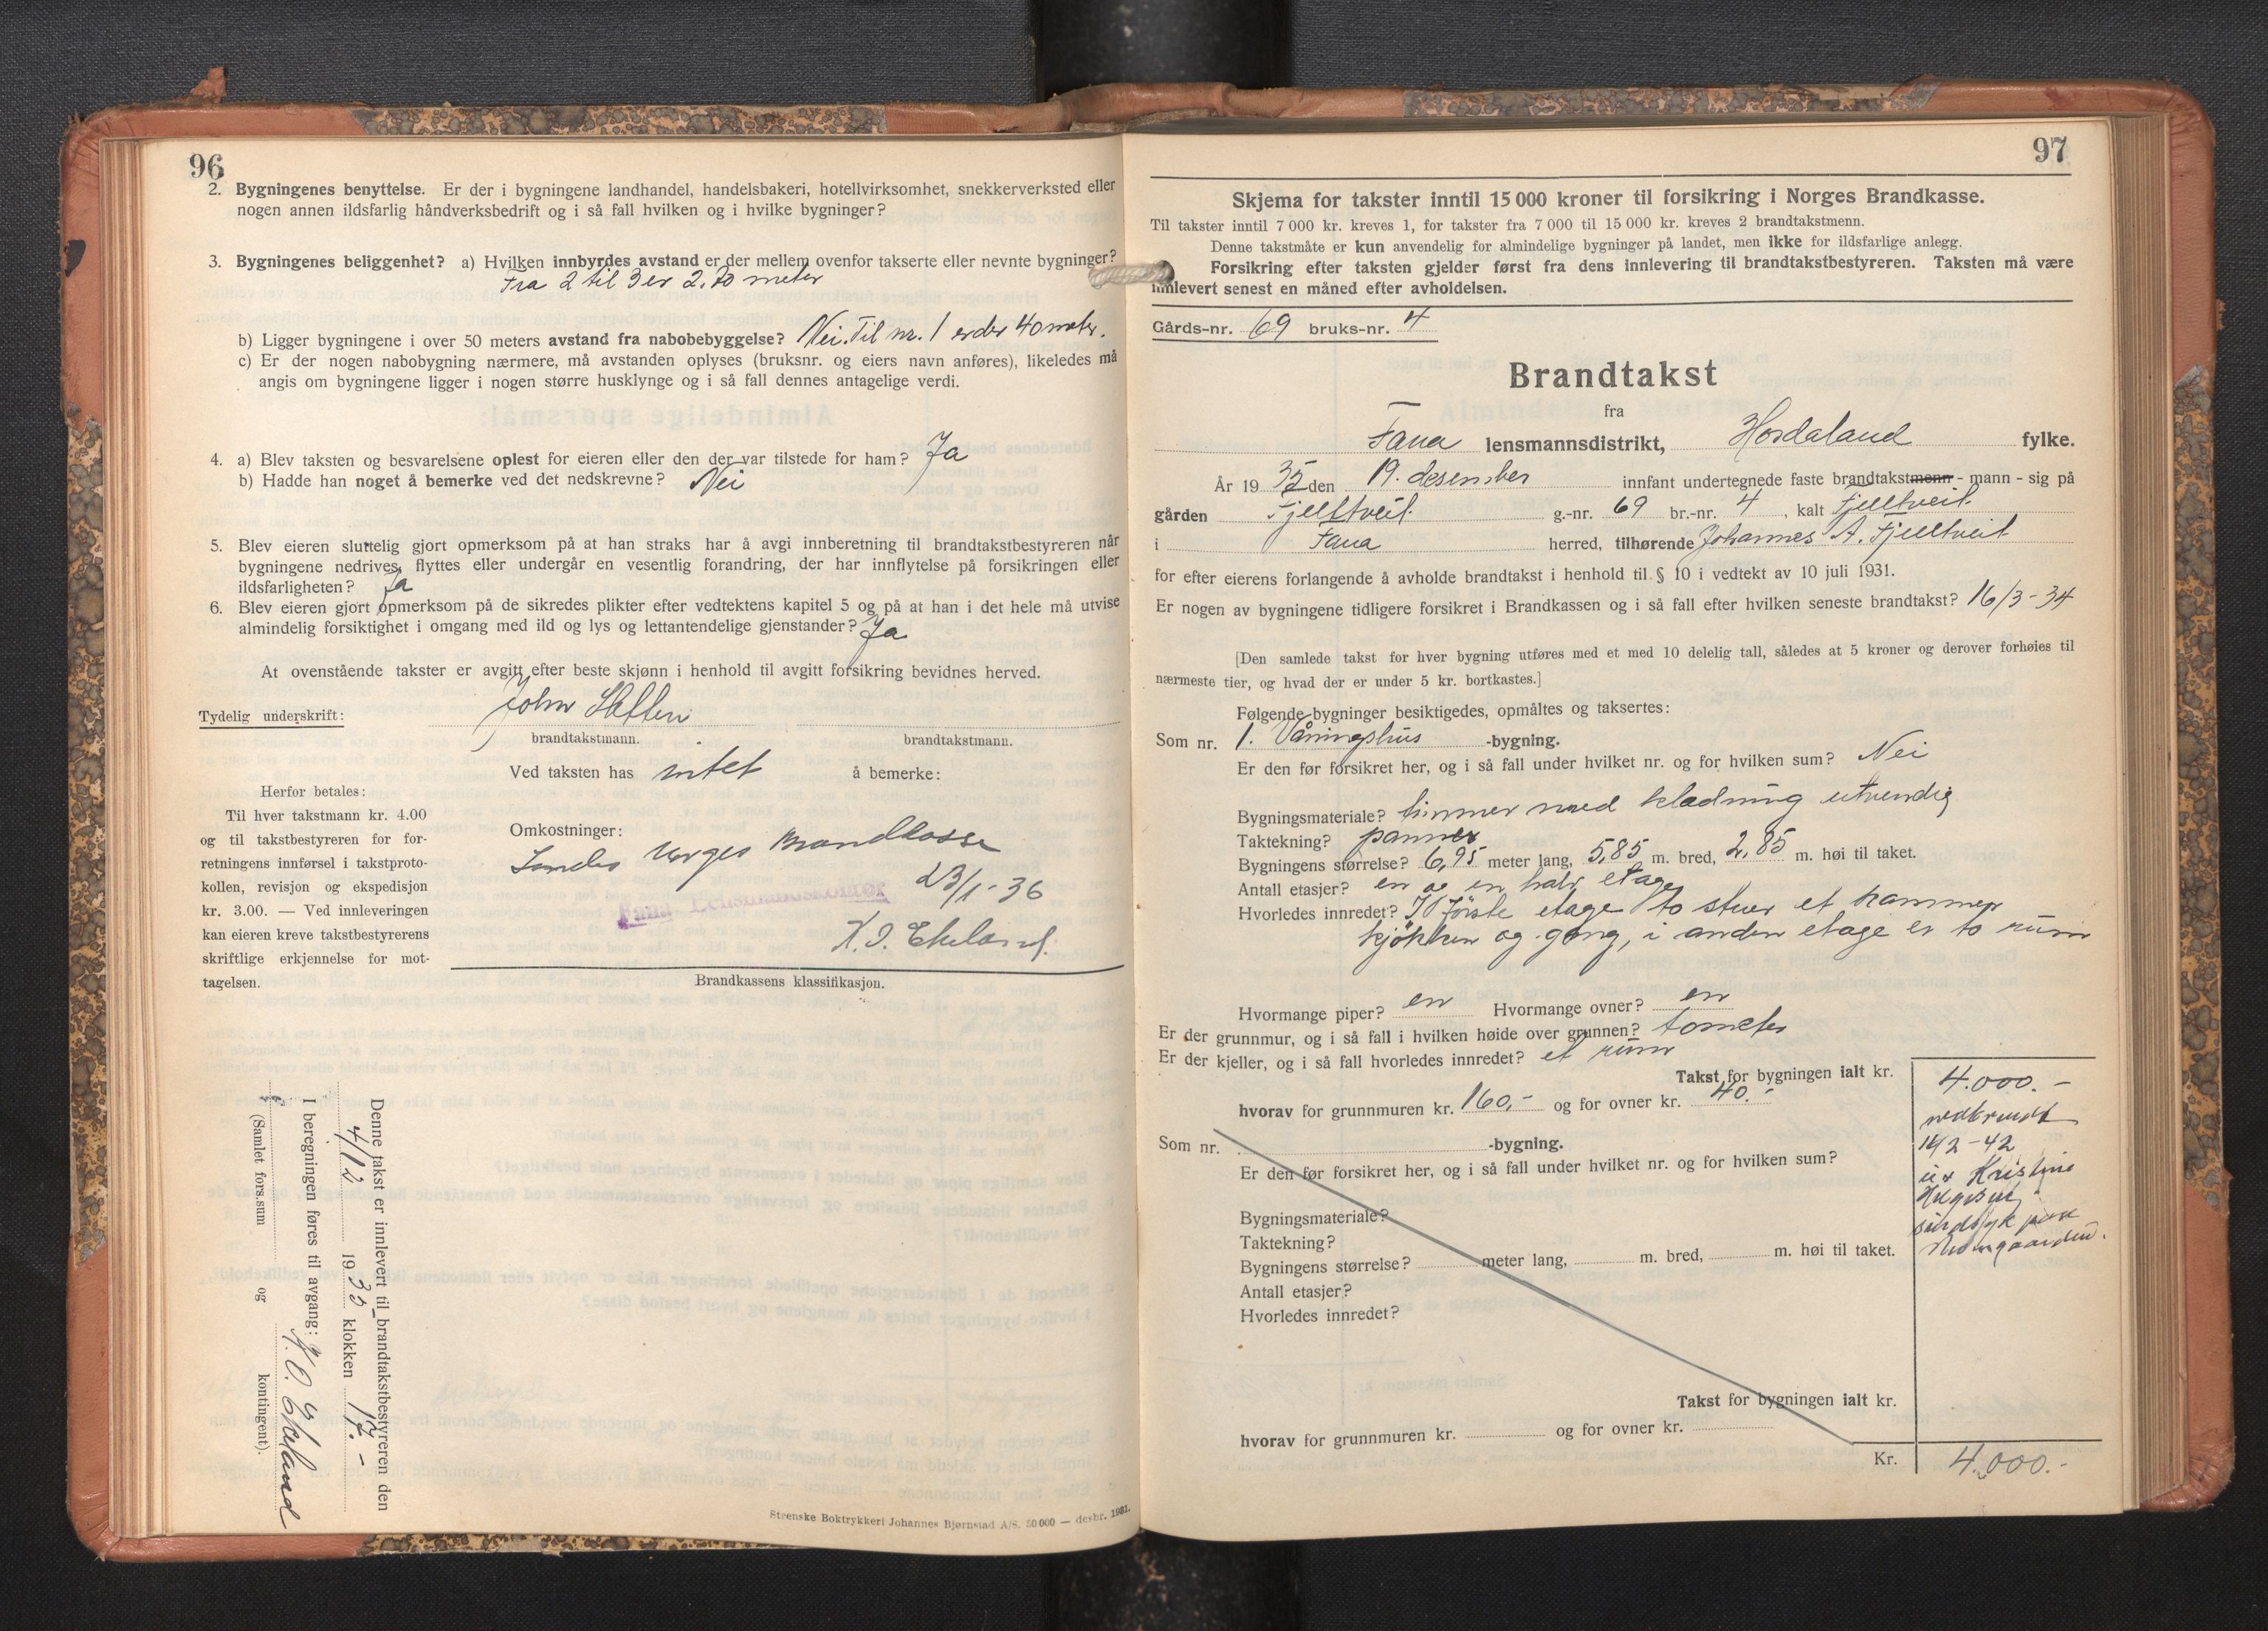 96
2. Bygningenes benyttelse. Er der i bygningene landhandel, handelsbakeri, hotellvirksomhet, snekkerverksted eller
nogen annen ildsfarlig håndverksbedrift og i så fall hvilken og i hvilke bygninger?
3. Bygningenes beliggenhet? a) Hvilken innbyrdes avstand er der mellem ovenfor takserte eller nevnte bygninger?
Fra 2 til 3 er 2.70 meter
b) Ligger bygningene i over 50 meters avstand fra nabobebyggelse? Nei. Til nr. 1 er der 40 meter.
c) Er der nogen nabobygning nærmere, må avstanden oplyses (bruksnr. og eiers navn anføres), likeledes må
angis om bygningene ligger i nogen større husklynge og i så fall dennes antagelige verdi.
4. a) Blev taksten og besvarelsene oplest for eieren eller den der var tilstede for ham? Ja
b) Hadde han noget å bemerke ved det nedskrevne? Nei
5. Blev eieren sluttelig gjort opmerksom på at han straks har å avgi innberetning til brandtakstbestyreren når
bygningene nedrives, flyttes eller undergår en vesentlig forandring, der har innflytelse på forsikringen eller
ildsfarligheten? Ja
6. Blev eieren gjort opmerksom på de sikredes plikter efter vedtektens kapitel 5 og på at han i det hele må utvise
almindelig forsiktighet i omgang med ild og lys og lettantendelige gjenstander? Ja
At ovenstående takster er avgitt efter beste skjønn i henhold til avgitt forsikring bevidnes herved.
Tydelig underskrift: John
brandtakstmann. brandtakstmann.
Ved taksten has intet å bemerke:
Herfor betales:
Til hver takstmann kr. 4.00
og til takstbestyreren for for-
retningens innførsel i takstproto-
kollen, revisjon og ekspedisjon
kr. 3.00. — Ved innleveringen
kan eieren kreve takstbestyrerens
skriftlige erkjennelse for mot-
tagelsen.
Omkostninger:
Sendes Norges Brandkasse
23/1-36
Fana Lensmandskontor
Brandkassens klassifikasjon.
Denne takst er innlevert til brandtakstbestyreren den
4/12 1935 klokken 17.-
I beregningen føres til avgang:
(Samlet fors.sum og kontingent).
Steenske Boktrykkeri Johannes Bjørnstad A/S. 50 000 — desbr. 1931.
97
Skjema for takster inntil 15 000 kroner til forsikring i Norges Brandkasse.
Til takster inntil 7 000 kr. kreves 1, for takster fra 7 000 til 15 000 kr. kreves 2 brandtakstmenn.
Denne takstmåte er kun anvendelig for almindelige bygninger på landet, men ikke for ildsfarlige anlegg.
Forsikring efter taksten gjelder først fra dens innlevering til brandtakstbestyreren. Taksten må være
innlevert senest en måned efter avholdelsen.
Gårds-nr. 69 bruks-nr. 4
Brandtakst
fra
Fana lensmannsdistrikt, Hordaland fylke.
År 1935 den 19. desember innfant undertegnede faste brandtakstmenn - mann - sig på
gården Fjelltveit g.-nr. 69 br.-nr. 4, kalt Fjelltveit
i Fana herred, tilhørende Johannes A. Fjelltveit
for efter eierens forlangende å avholde brandtakst i henhold til § 10 i vedtekt av 10 juli 1931.
Er nogen av bygningene tidligere forsikret i Brandkassen og i så fall efter hvilken seneste brandtakst? 16/3-34
[Den samlede takst for hver bygning utføres med et med 10 delelig tall, således at 5 kroner og derover forhøies til
nærmeste tier, og hvad der er under 5 kr. bortkastes.]
Følgende bygninger besiktigedes, opmåltes og taksertes:
Som nr. 1. Våningshus -bygning.
Er den før forsikret her, og i så fall under hvilket nr. og for hvilken sum? Nei
Bygningsmateriale? timmer med kledning utvendig
Taktekning? panner
Bygningens størrelse? 6,95 meter lang, 5,85 m. bred, 2,85 m. høi til taket.
Antall etasjer? en og en halv etage
Hvorledes innredet? I første etage to stuer et kammer
kjøkken og gang, i anden etage er to rum
Hvormange piper? en Hvormange ovner? en
Er der grunnmur, og i så fall i hvilken høide over grunnen? to meter
Er der kjeller, og i så fall hvorledes innredet? et rum
Takst for bygningen ialt kr. 4.000.-
hvorav for grunnmuren kr. 160,- og for ovner kr. 40.-
nedbrendt
-42
Kristine
sindsyk
Som nr. -bygning.
Er den før forsikret her, og i så fall under hvilket nr. og for hvilken sum?
Bygningsmateriale?
Taktekning?
Bygningens størrelse? meter lang, m. bred, m. høi til taket.
Antall etasjer?
Hvorledes innredet?
Takst for bygningen ialt kr.
hvorav for grunnmuren kr. og for ovner kr.
Kr. 4.000.-